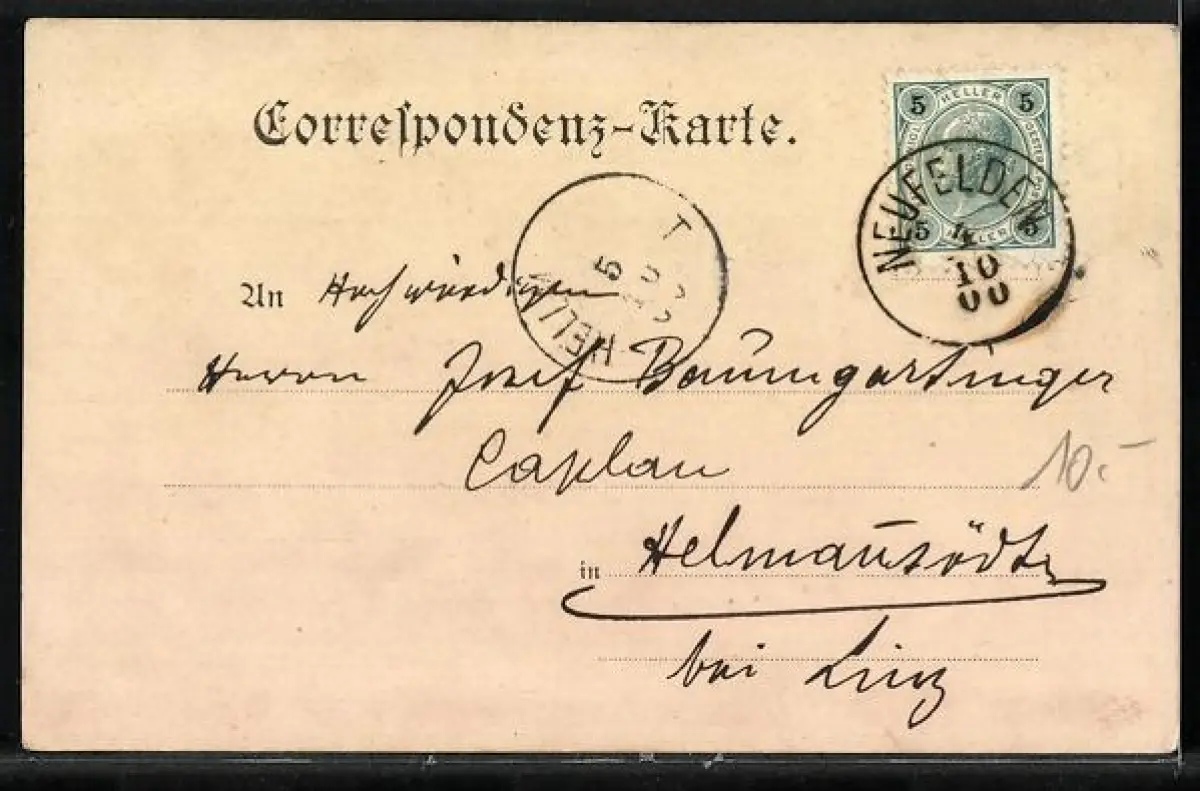 Correspondenz-Karte.
5 HELLER 5
5 HELLER 5
NEUFELDEN
10
00
An Hochwürdigen
Herrn Josef Baumgartinger
Caplan
10.-
in Helmansödt
bei Linz
HELL
5
T